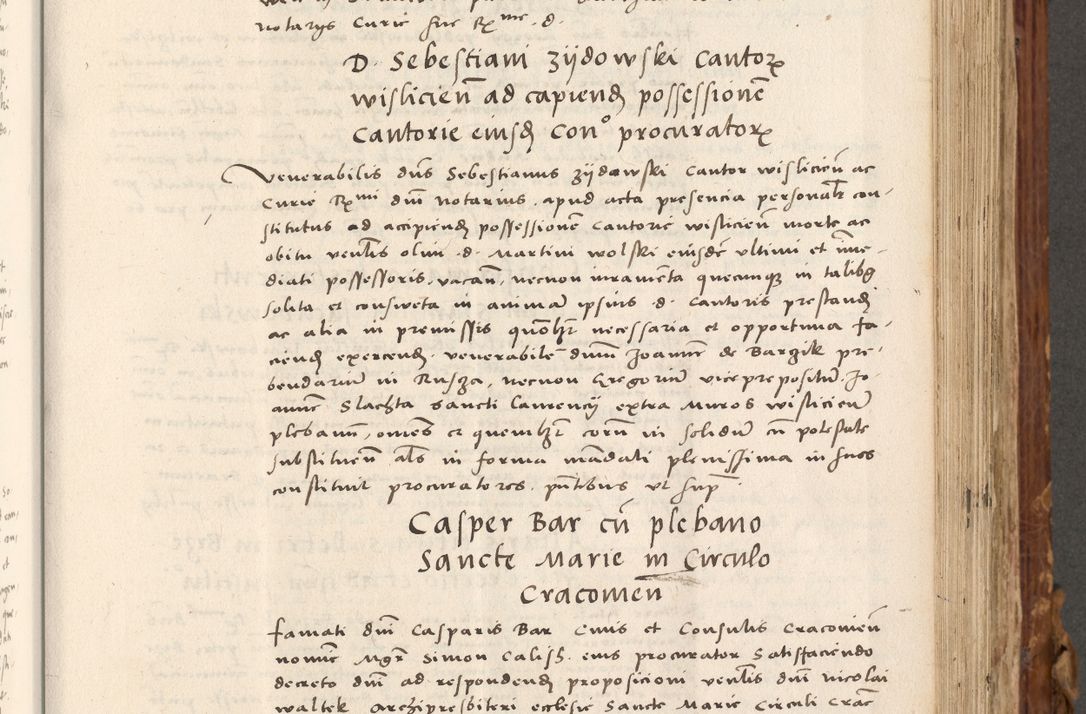 notarys Curie sue Rme. d.
D. Sebestiani Zijdowski Cantorꝝ
wislicień ad capiendꝭ possessionē
Cantorie eiusdꝭ Cono procuratorꝝ
Venerabilis dn̄s Sebestianus Zijdowski Cantor wislicień ac
Curie Rmi dn̄i notarius, apud acta presencia personalr con-
stitutus ad accipiendꝭ possessionē Cantorie wislicień morte ac
obitu venlis olim d. Martini wolski eiusdē ultimi et im̄e-
diati possessoris, vacań, necnon iuramēta quecunqꝫ in talibꝫ
solita et consweta in animā ipsius d. Cantoris prestandꝭ
ac alia in premissis quōlꝫ necessaria et opportuna fa-
ciendꝭ exercendꝭ, venerabilē dn̄m Joannē de Barzik pre-
bendariū in Rusza, necnon Gregoriū vicepreposítū, Jo-
annē Slachta sancti Laurencij extra muros wislicień
plebanū, omēs et quemlꝫ eorū in solidū cū potestate
substituēn als in forma mādati plenissima in suos
constituit procuratores, pn̄tibus ut supͣ
Casper Bar cū plebano
Sancte Marie in Circulo
Cracouień
famati dn̄i Casparis Bar Ciuis et Consulis Cracouień
nomine Mgr Simon Calissꝭ. eius procurator Satisfaciendo
decreto dn̄i ad respondendꝭ proposicioni venlis dn̄i Nicolai
waltek Archipresbiteri ecclesie Sancte Marie Circuli Crac̄